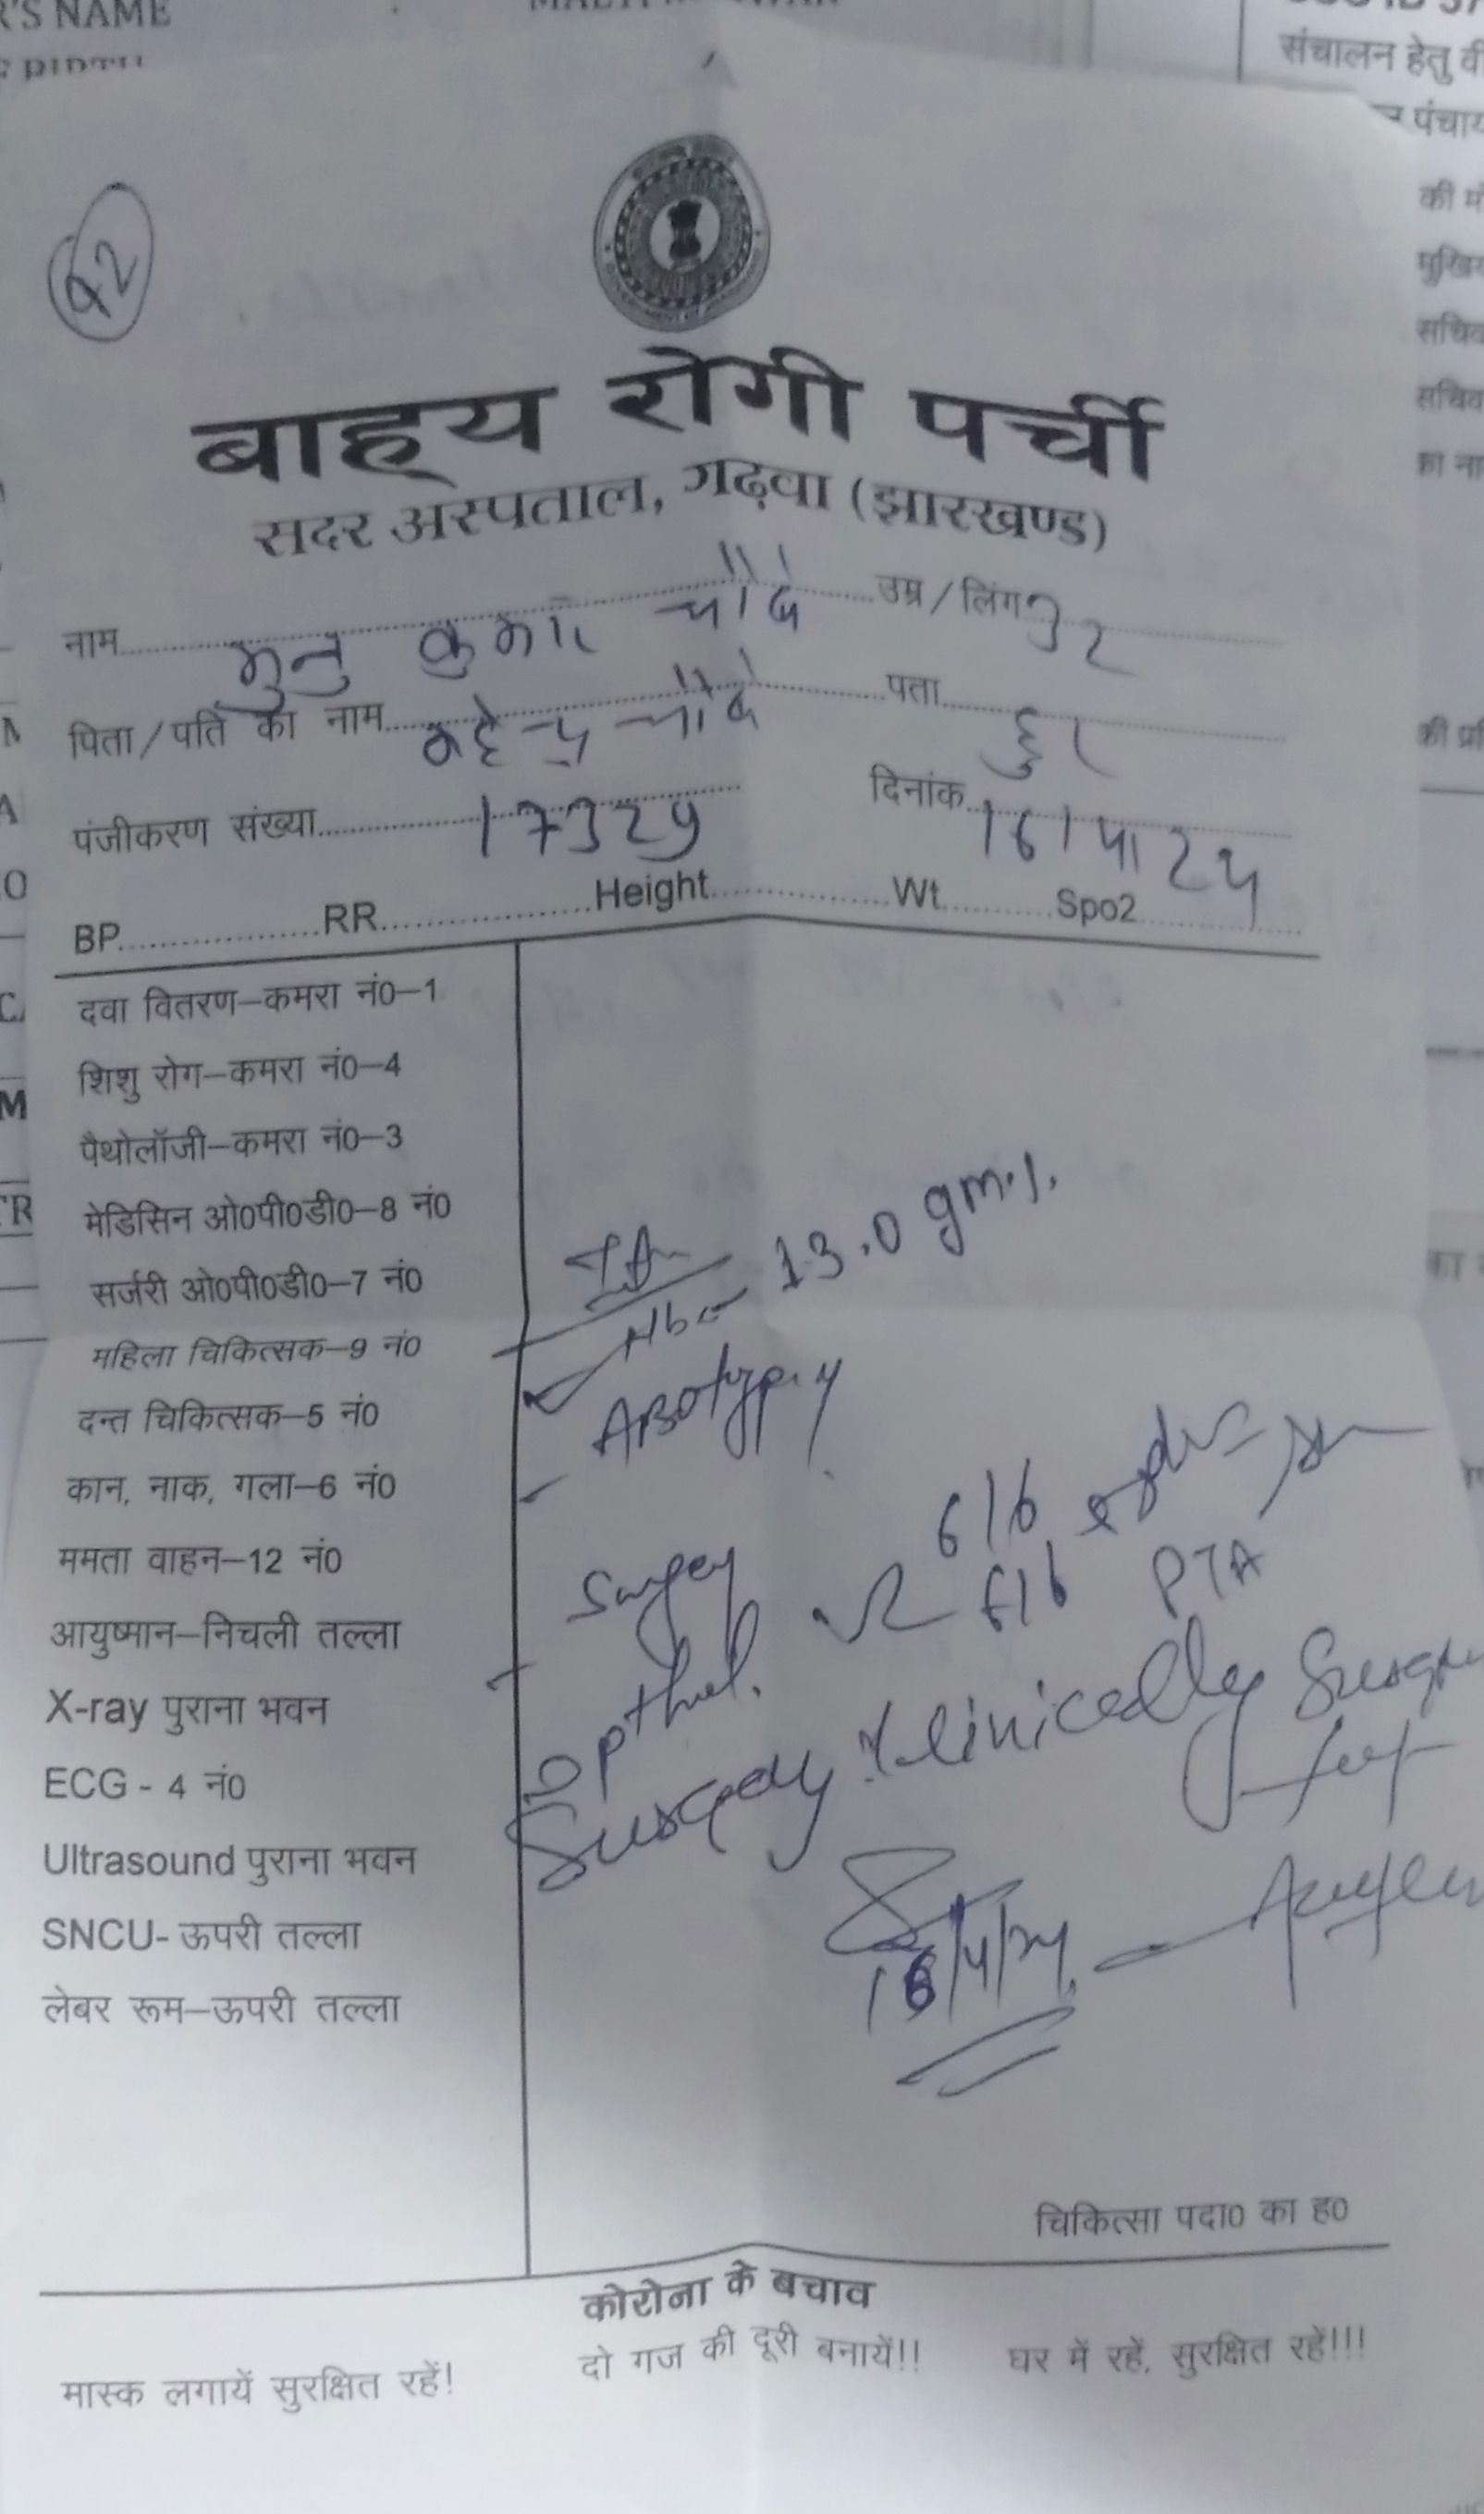 R'S NAME
संचालन हेतु
पंचाय
की
सचिव
सचिव
का ना
62
बाह्य रोगी पर्ची
सदर अस्पताल, गढ़वा (झारखण्ड)
नाम मुनु कुमार चौबे उम्र/लिंग 32
पिता/पति का नाम महेन्द्र चौबे पता हुर
पंजीकरण संख्या 17329 दिनांक 16/4/24
BP RR Height Wt Spo2
दवा वितरण–कमरा नं0–1
शिशु रोग–कमरा नं0–4
पैथोलॉजी–कमरा नं0–3
मेडिसिन ओ0पी0डी0–8 नं0
सर्जरी ओ0पी0डी0–7 नं0
महिला चिकित्सक–9 नं0
दन्त चिकित्सक–5 नं0
कान, नाक, गला–6 नं0
ममता वाहन–12 नं0
आयुष्मान–निचली तल्ला
X-ray पुराना भवन
ECG - 4 नं0
Ultrasound पुराना भवन
SNCU- ऊपरी तल्ला
लेबर रूम–ऊपरी तल्ला
Hb 13.0 gm%
ABO typing
Surgery 6/6
Opthal. 6/6
Surgery Clinically
16/4/24
चिकित्सा पदा0 का ह0
कोरोना के बचाव
मास्क लगायें सुरक्षित रहें! दो गज की दूरी बनायें!! घर में रहें, सुरक्षित रहें!!!